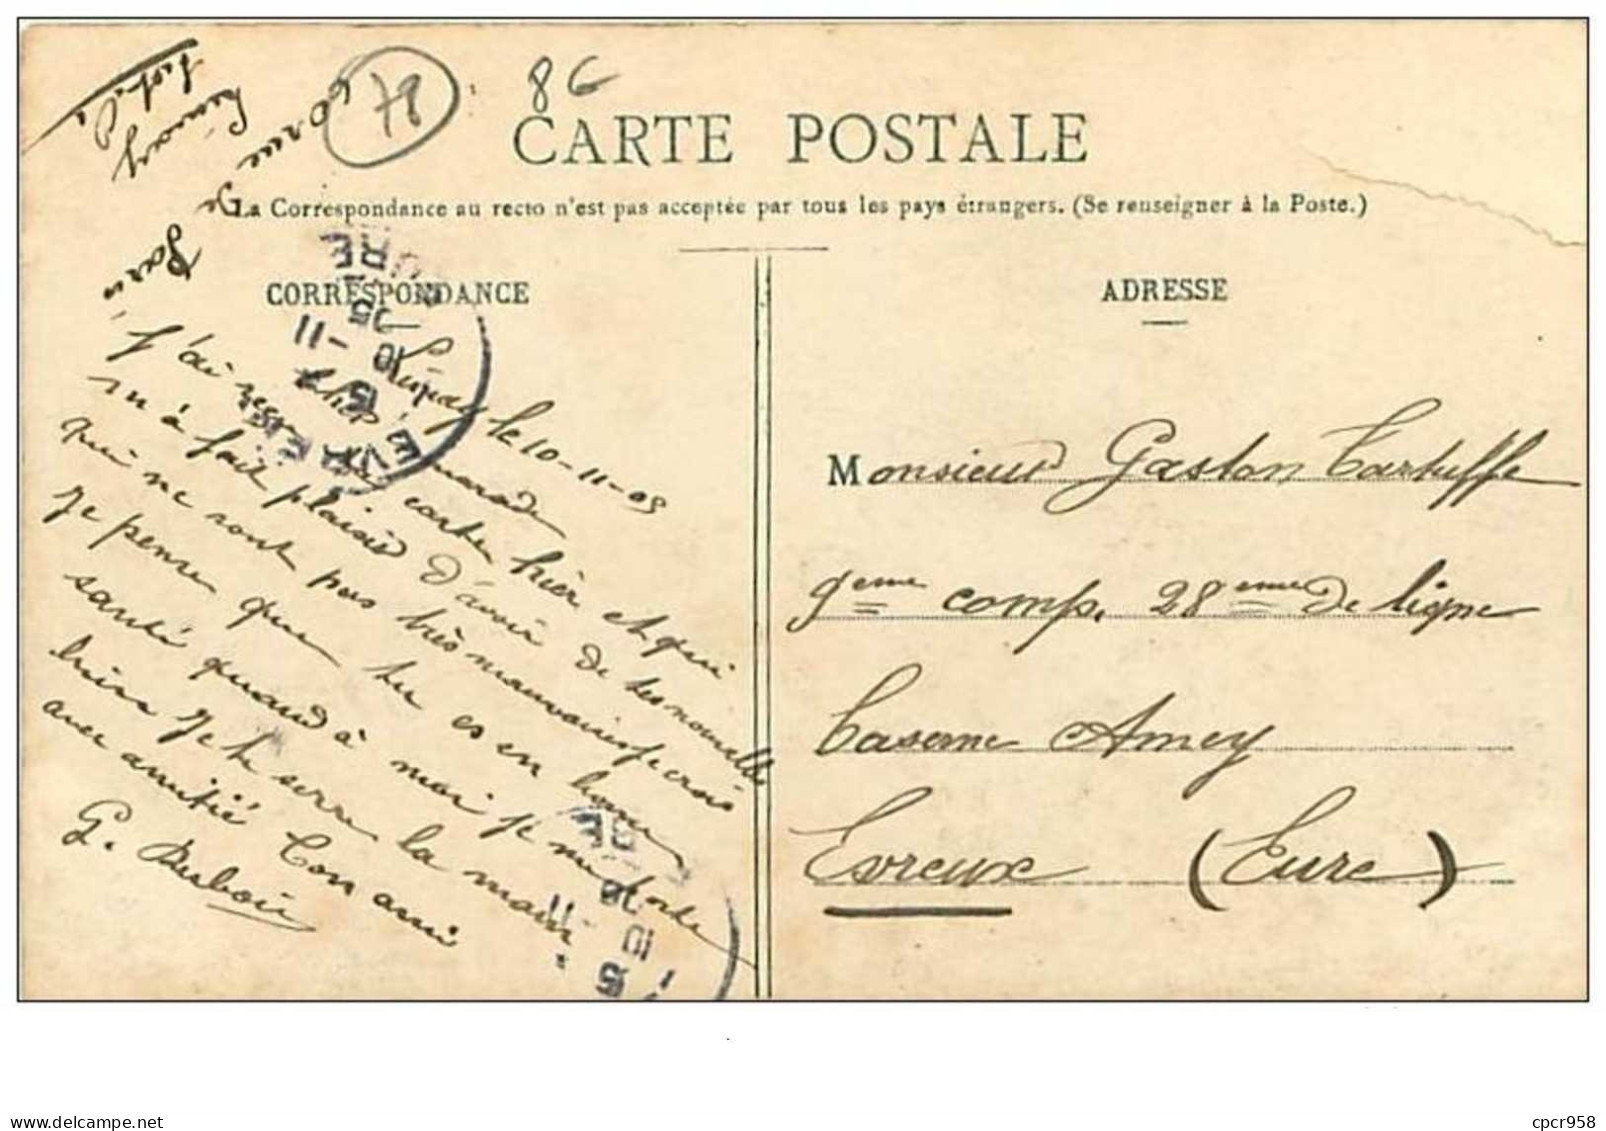 78
8G
CARTE POSTALE
La Correspondance au recto n'est pas acceptée par tous les pays étrangers. (Se renseigner à la Poste.)
CORRESPONDANCE
le 10-11-05
J'ai reçu ta carte hier et qui
m'a fait plaisir d'avoir de tes nouvelles
qui ne sont pas très mauvaises je crois
Je pense que tu es en bonne
santé quand à moi je me porte
bien Je te serre la main
avec amitié Ton ami
G. Dubois
ADRESSE
Monsieur Gaston Tartuffe
9eme comp. 28eme de ligne
Caserne Amey
Evreux (Eure)
Delcampe.net
cpcr958